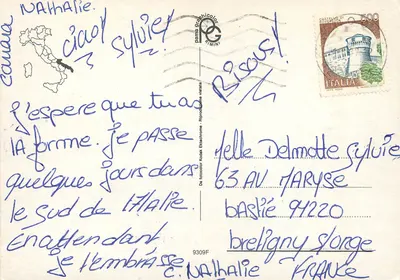 Nathalie.
Ciao! Sylvie!
Bisous!
500
ITALIA
J'espere que tu as
la forme. Je passe
quelques jours dans
le sud de l'Italie.
En attendant
je t'embrasse
C. Nathalie
Melle Delmotte Sylvie
63 AV MARYSE
bastié 91220
bretigny s/orge
FRANCE
9309F